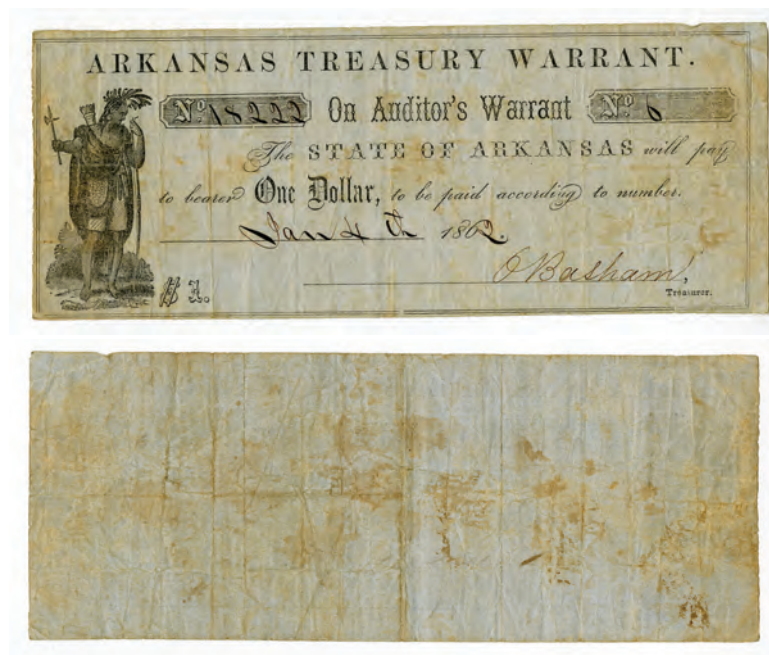 ARKANSAS TREASURY WARRANT.
No 18222 On Auditor's Warrant No 6
The STATE OF ARKANSAS will pay
to bearer One Dollar, to be paid according to number.
Jan 4th 1862.
O Basham,
$ 1.
Treasurer.